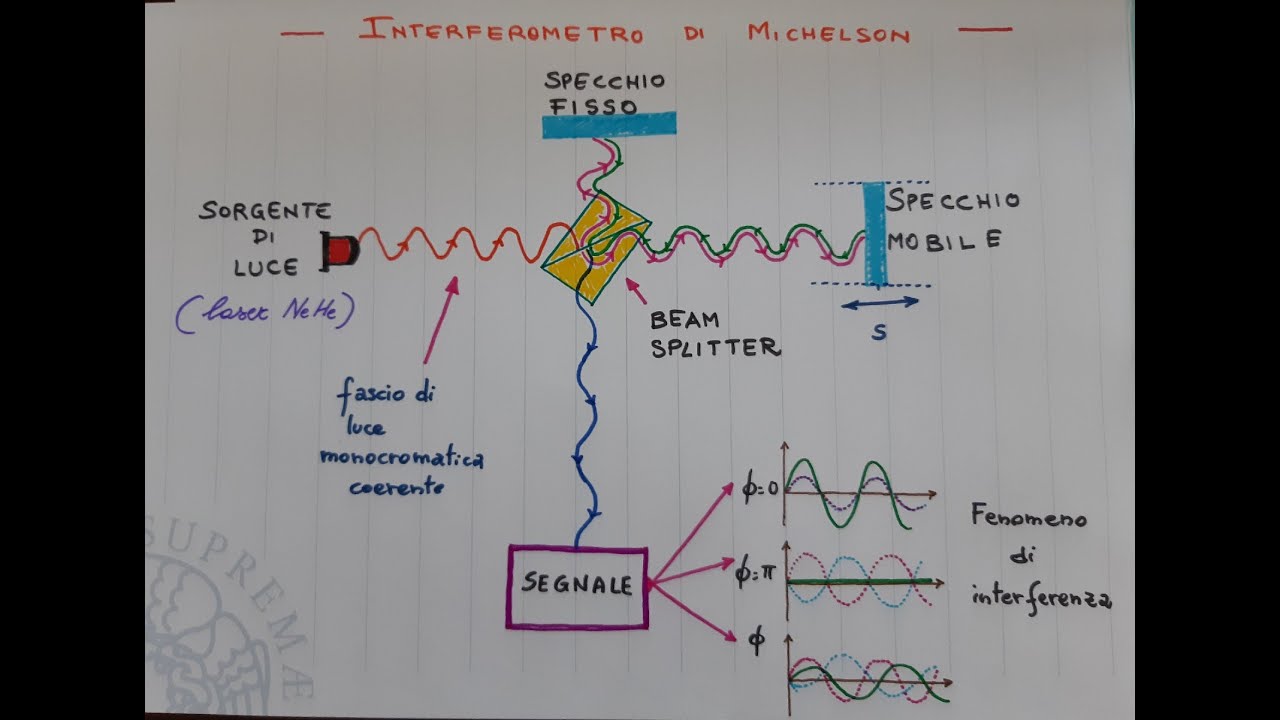 — INTERFEROMETRO DI MICHELSON —
SPECCHIO
FISSO
SORGENTE
DI
LUCE
(laser NeHe)
SPECCHIO
MOBILE
S
BEAM
SPLITTER
fascio di
luce
monocromatica
coerente
SEGNALE
ϕ=0
ϕ=π
ϕ
Fenomeno
di
interferenza
SUPREMÆ